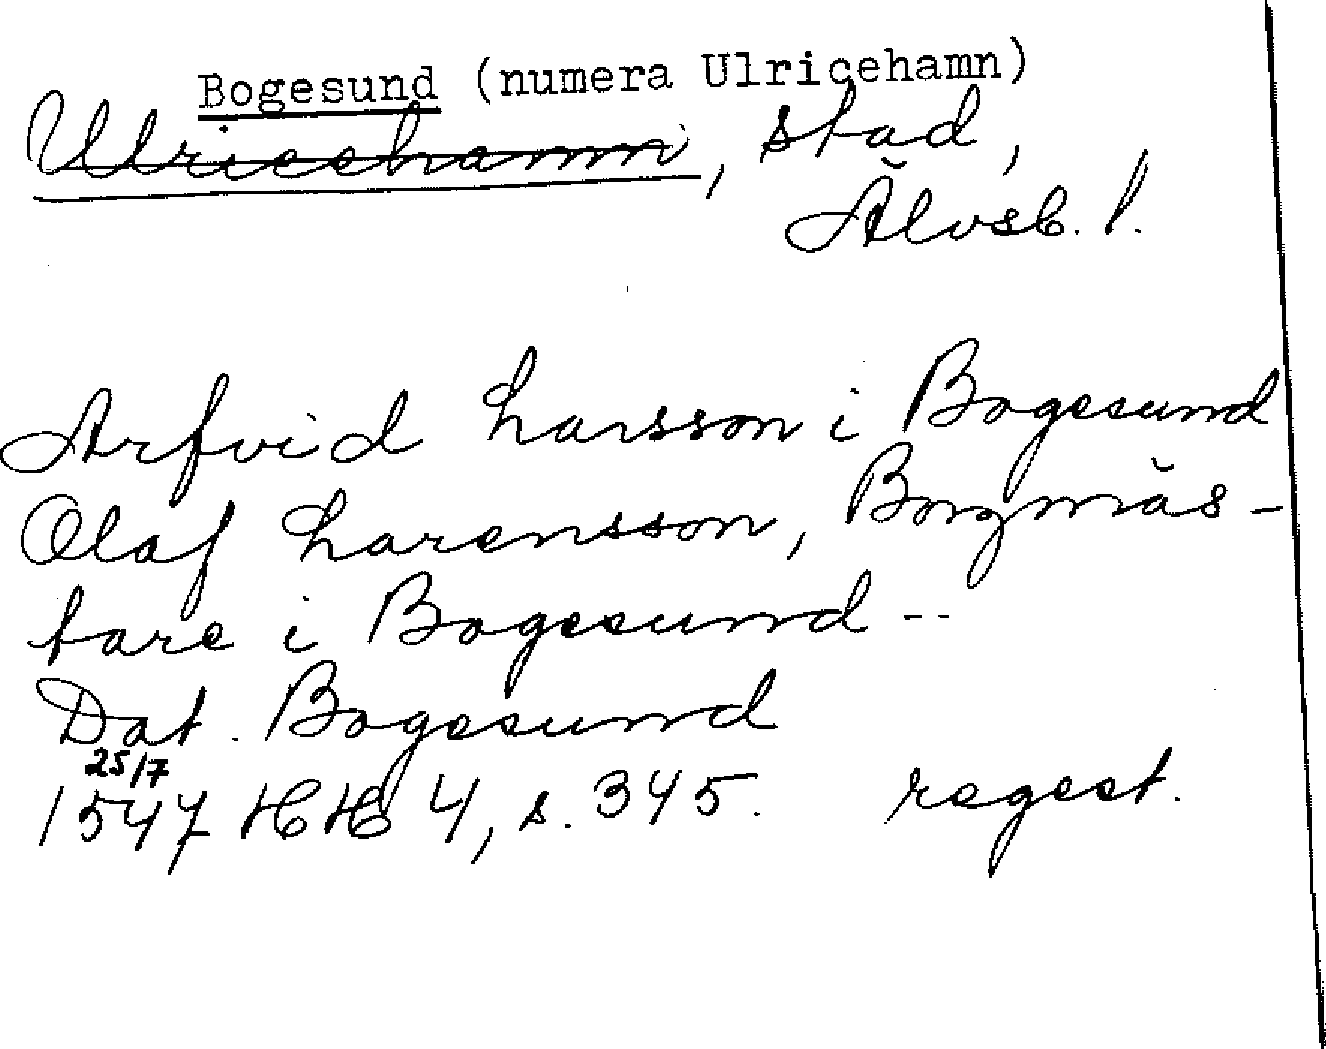 Bogesund (numera Ulricehamn)
Ulricehamn, stad,
Älvsb. l.
Arfvid Larsson i Bogesund
Olaf Larensson, Borgmäs-
tare i Bogesund --
Dat. Bogesund
25/7
1547 HH 4, s. 345. regest.